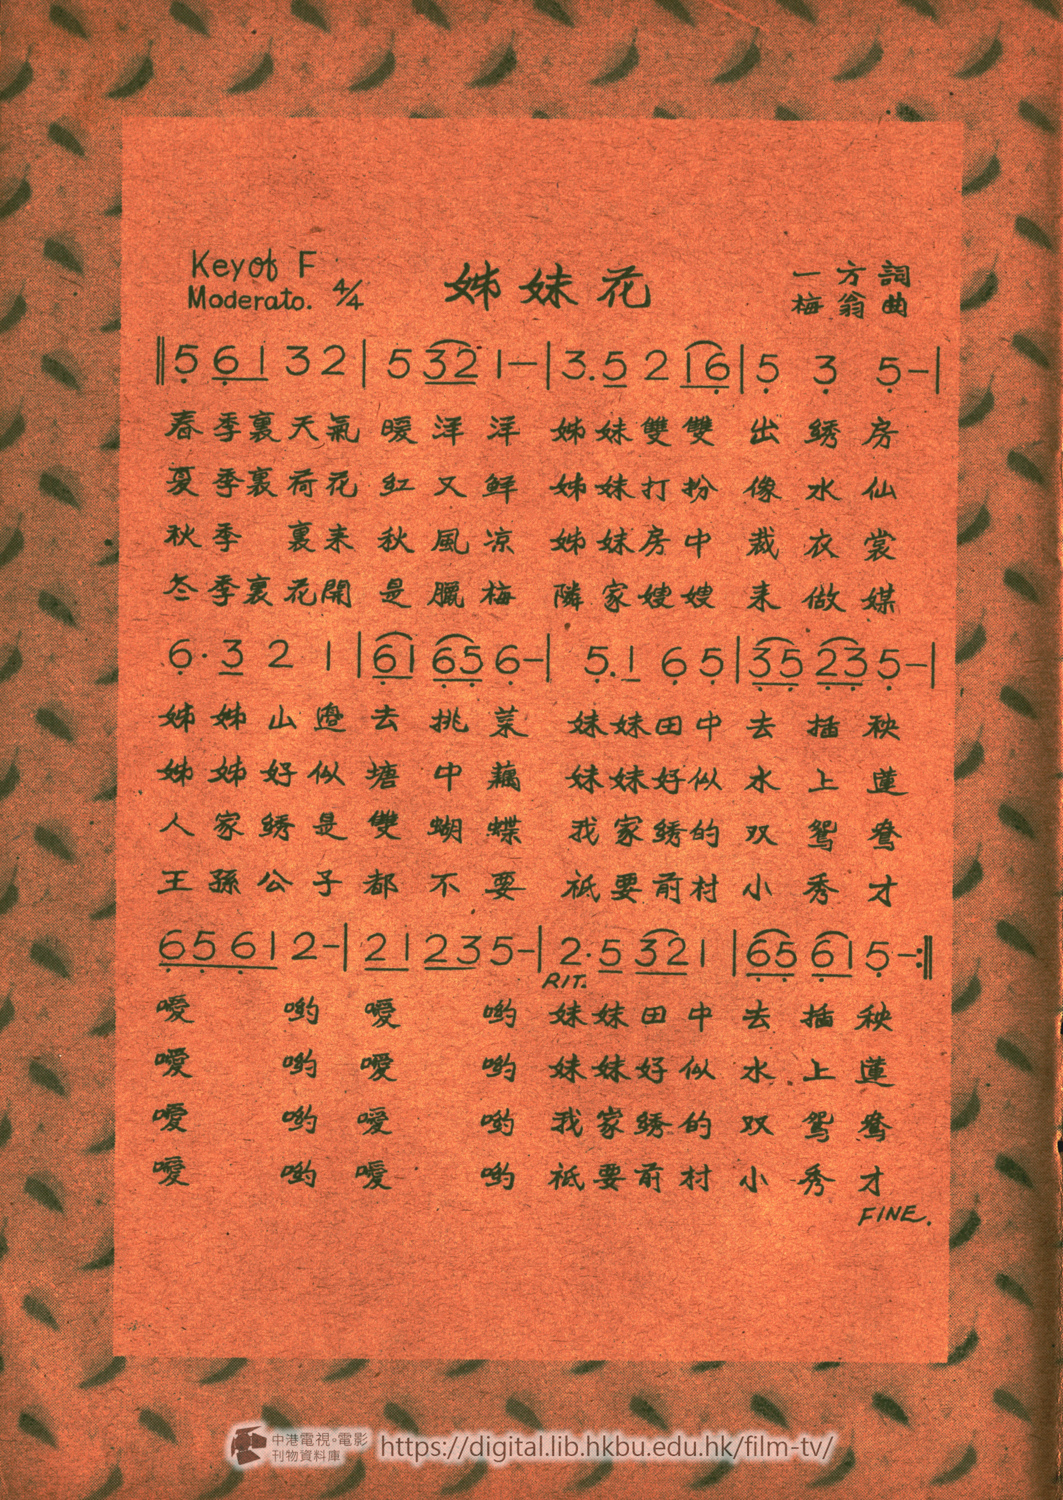 Key of F
Moderato. 4/4
姊妹花
一方詞
梅翁曲
‖5 6 1 3 2 | 5 3 2 1 — | 3. 5 2 1 6 | 5 3 5 — |
春季裏天氣暖洋洋 姊妹雙雙出綉房
夏季裏荷花紅又鮮 姊妹打扮像水仙
秋季裏來秋風凉 姊妹房中裁衣裳
冬季裏花開是臘梅 隣家嫂嫂來做媒
6 · 3 2 1 | 6 1 6 5 6 — | 5. 1 6 5 | 3 5 2 3 5 — |
姊姊山邊去挑菜 妹妹田中去插秧
姊姊好似塘中藕 妹妹好似水上蓮
人家綉是雙蝴蝶 我家綉的双鴛鴦
王孫公子都不要 祇要前村小秀才
6 5 6 1 2 — | 2 1 2 3 5 — | 2 · 5 3 2 1 | 6 5 6 1 5 — :‖
RIT.
噯 喲 噯 喲 妹妹田中去插秧
噯 喲 噯 喲 妹妹好似水上蓮
噯 喲 噯 喲 我家綉的双鴛鴦
噯 喲 噯 喲 祇要前村小秀才
FINE.
中港電視·電影
刊物資料庫
https://digital.lib.hkbu.edu.hk/film-tv/